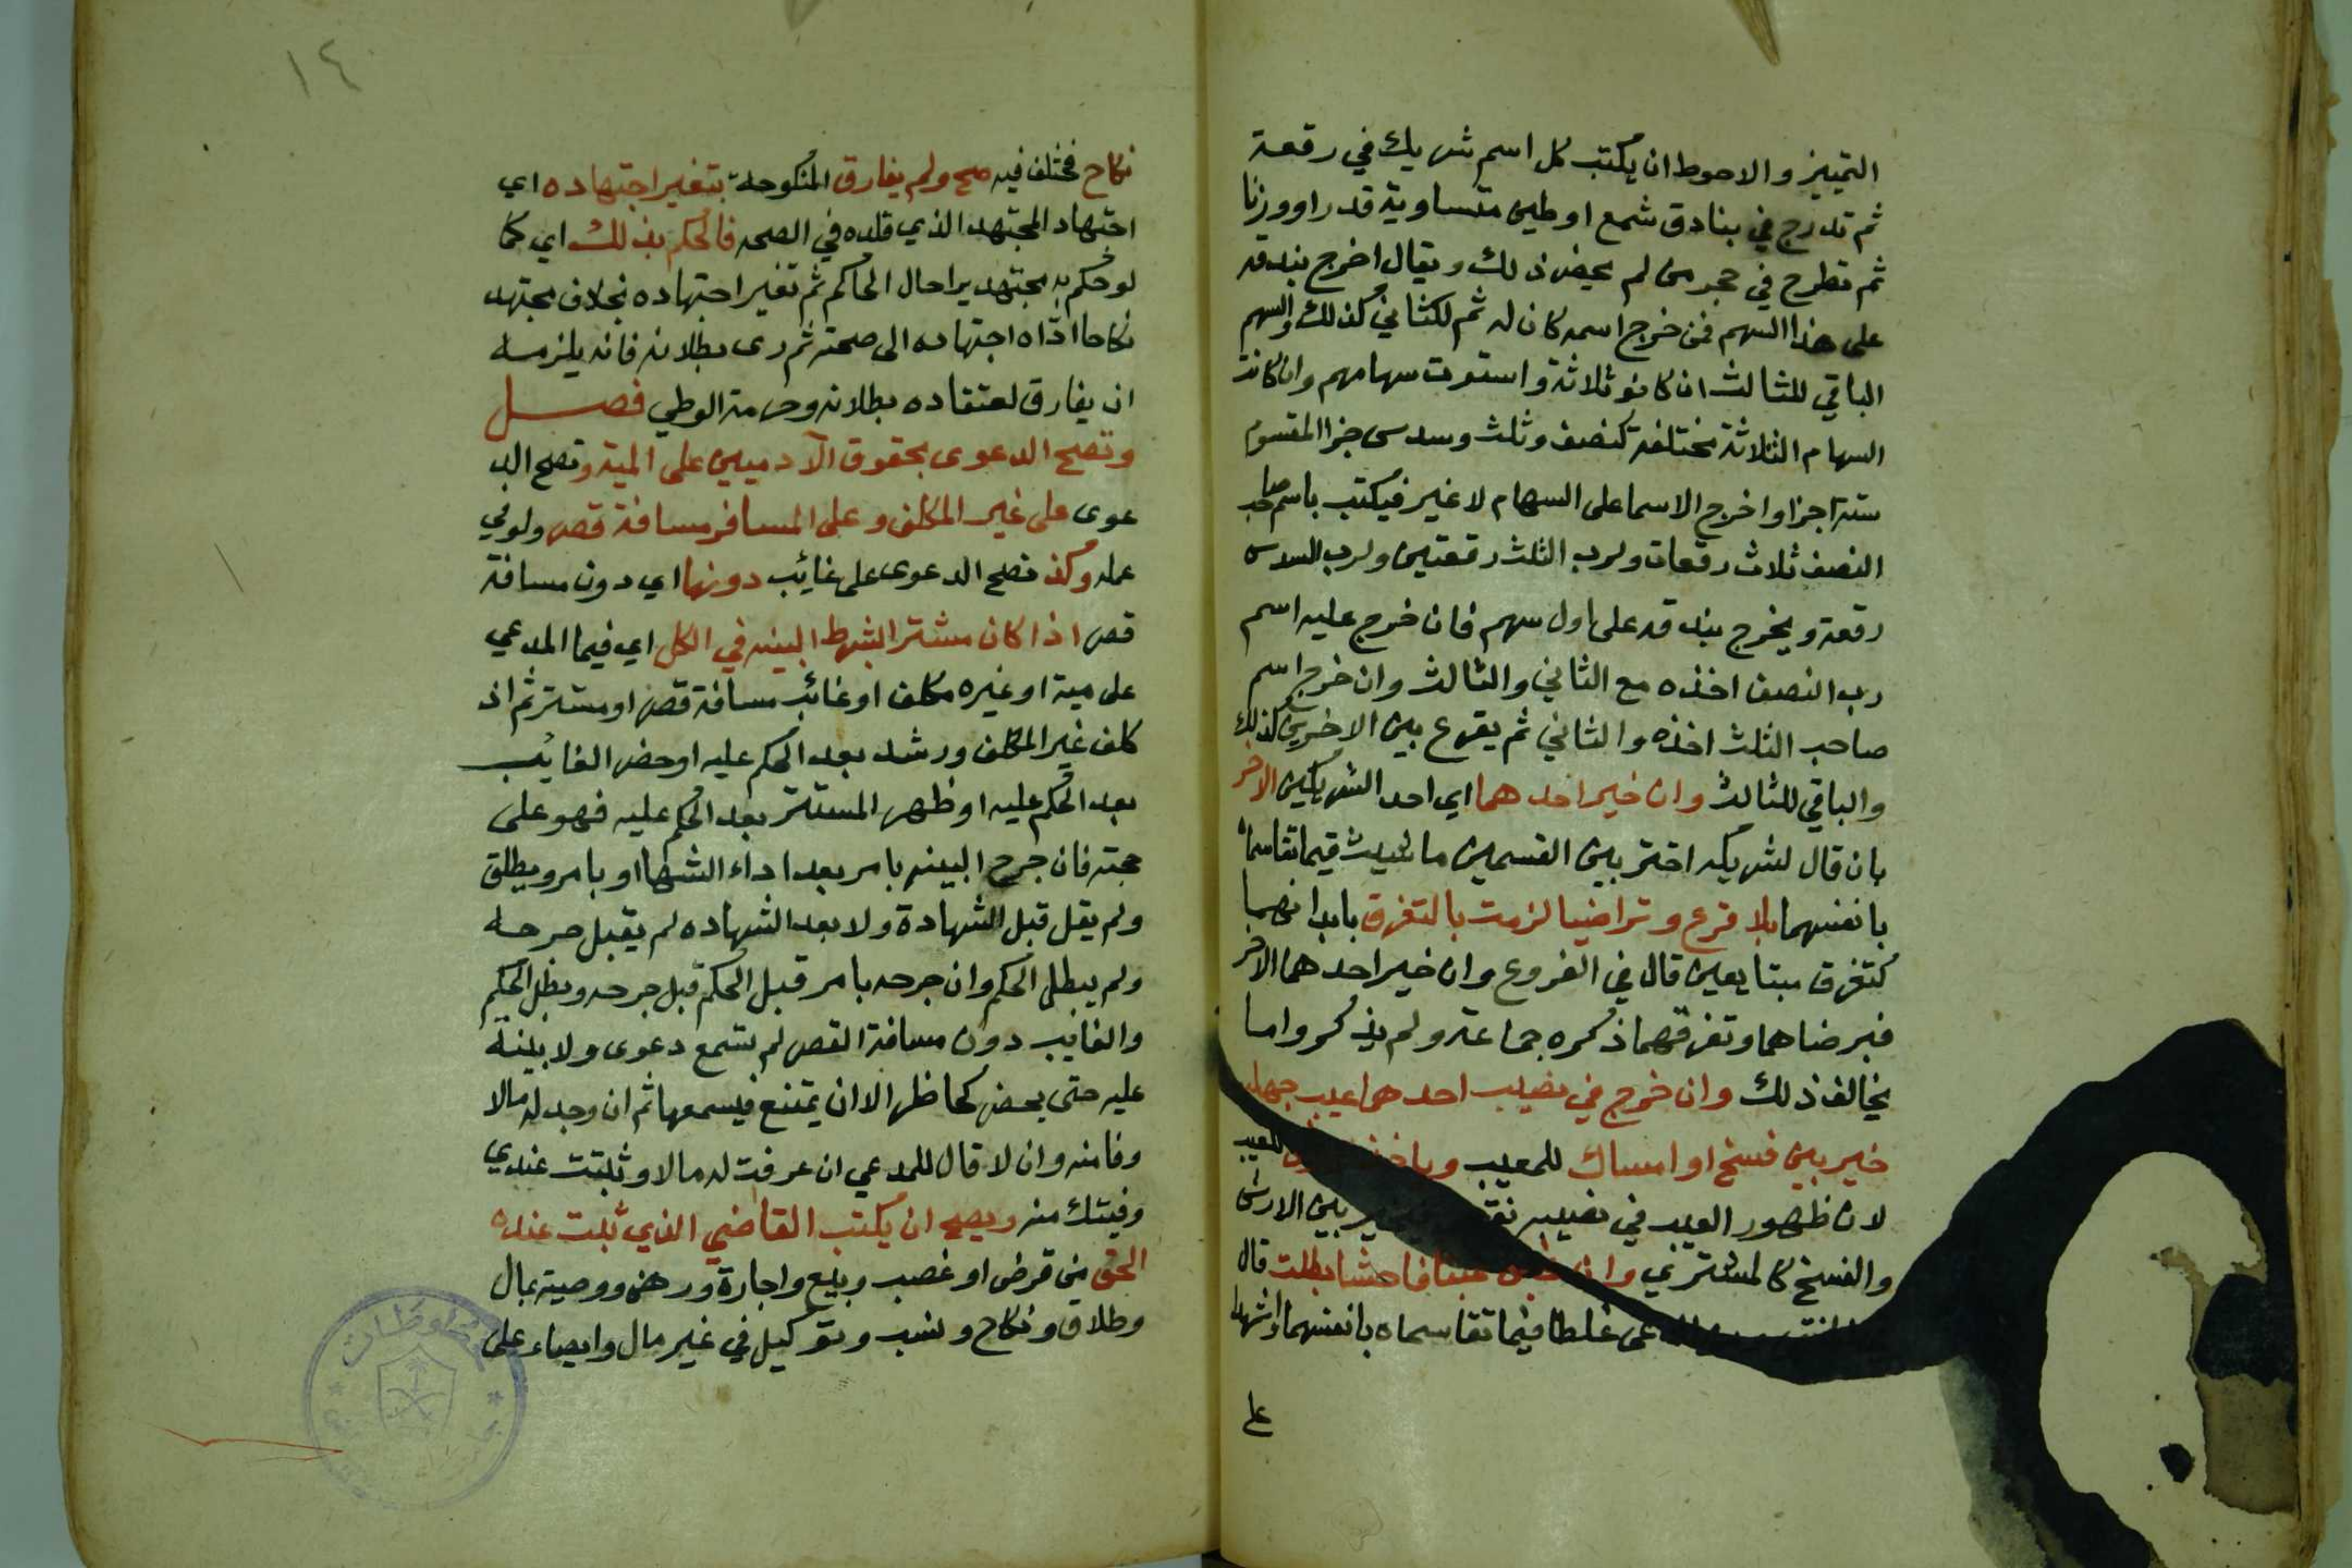 التمييز والاحوط ان يكتب كل اسم شريك في رقعة
ثم تدرج في بنادق شمع او طين متساوية قدرا ووزنا
ثم تطرح في حجر من لم يحضر ذلك ويقال اخرج بندقه
على هذا السهم فمن خرج اسمه كان له ثم لكثاني كذلك والسهم
الباقي للثالث ان كانو ثلاثة واستوت سهامهم وان كانت
السهام الثلاثة مختلفة كنصف وثلث وسدس جزا المقسوم
ستة اجزا واخرج الاسما على السهام لا غير فيكتب باسم صاحب
النصف ثلاث رقعات ولرب الثلث رقعتين ولرب السدس
رقعة ويخرج بندقه على اول سهم فان خرج عليه اسم
رب النصف اخذه مع الثاني والثالث وان خرج اسم
صاحب الثلث اخذه والثاني ثم يقرع بين الاخرين كذلك
والباقي للثالث وان خير احدهما اي احد الشريكين الاخر
بان قال لشريكه اختر بين القسمين ما شيت فيما تقاسماه
بانفسهما بلا قرع وتراضيا لزمت بالتفرق بابدانهما
كتفرق متبايعين قال في الفروع وان خير احدهما الاخر
فبرضاهما وتفرقهما ذكره جماعة ولم يذكروا ما
يخالف ذلك وان خرج في نصيب احدهما عيب جهله
خير بين فسخ او امساك للمعيب
لان ظهور العيب في نصيبه بين الارش
والفسخ كالمشتري وان غبن غبنا فاحشا بطلت قال
غلطا فيما تقاسماه بانفسهما واشهدا
على
١٤
نكاح مختلف فيه صح ولم يفارق المنكوحة بتغير اجتهاده اي
اجتهاد المجتهد الذي قلده في الصحه فالحكم بذلك اي كما
لو حكم به مجتهد يرا حال الحاكم ثم تغير اجتهاده بخلاف مجتهد
نكاحا اداه اجتهاده الى صحته ثم رى بطلانه فانه يلزمه
ان يفارق لعتقاده بطلانه وحرمة الوطي فصل
وتصح الدعوى بحقوق الآدميين على الميت وتصح الد
عوى على غير المكلف وعلى المسافر مسافة قصر ولو في
عمله وكذ تصح الدعوى على غائب دونها اي دون مسافة
قصر اذا كان مستترا بشرط البينه في الكل اي فيما المدعي
على ميت او غيره مكلف او غائب مسافة قصر او مستتر ثم اذ
كلف غير المكلف ورشد بعد الحكم عليه او حضر الغايب
بعد الحكم عليه او ظهر المستتر بعد الحكم عليه فهو على
حجته فان جرح البينه بامر بعد اداء الشها او بامر ويطلق
ولم يقل قبل الشهادة ولا بعد الشهاده لم يقبل جرحه
ولم يبطل الحكم وان جرحه بامر قبل الحكم قبل جرحه وبطل الحكم
والغايب دون مسافة القصر لم تسمع دعوى ولا بينة
عليه حتى يحضر كحاظر الا ان يمتنع فيسمعها ثم ان وجد له مالا
وفا منه وان لا قال للمدعي ان عرفت له مالا وثبتت عندي
وفيتك منه ويصح ان يكتب القاضي الذي ثبت عنده
الحق من قرض او غصب وبيع واجارة ورهن ووصية بمال
وطلاق ونكاح ونسب وتوكيل في غير مال وايصاء على